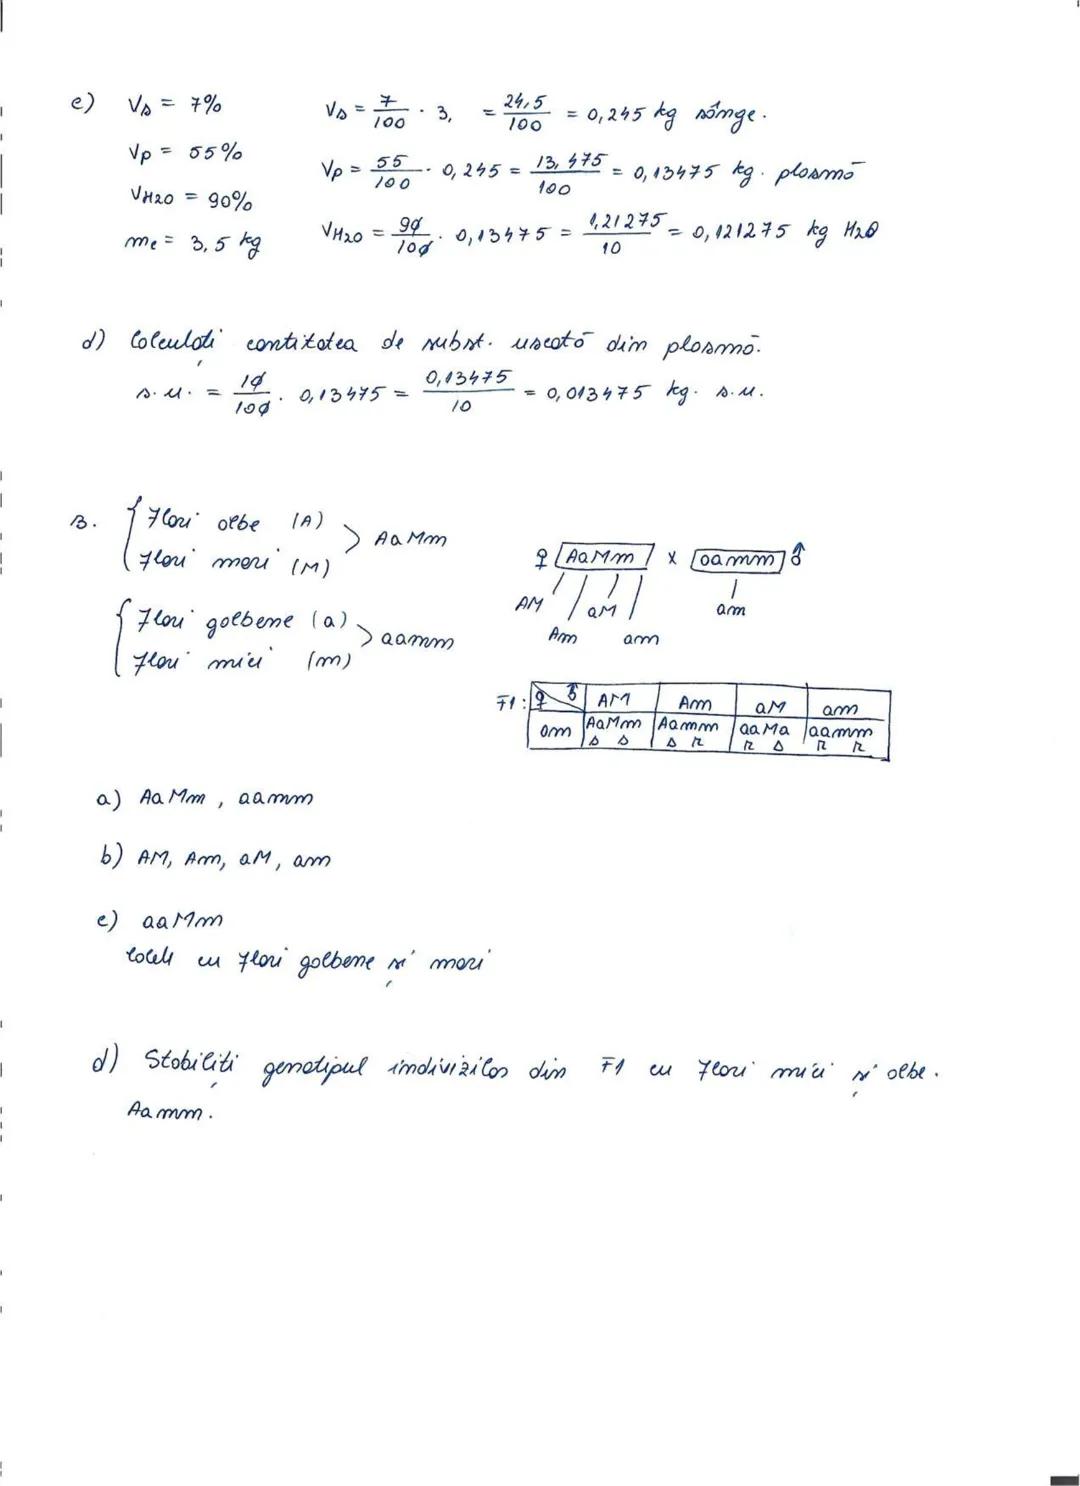 c) Vs = 7%
Vs = 7/100 · 3, = 24,5/100 = 0,245 kg sânge.
Vp = 55%
Vp = 55/100 · 0,245 = 13,475/100 = 0,13475 kg. plasmă
VH2O = 90%
VH2O = 90/100 · 0,13475 = 1,21275/10 = 0,121275 kg H2O
mc = 3,5 kg
d) Calculați cantitatea de subst. uscată din plasmă.
s.u. = 10/100 · 0,13475 = 0,13475/10 = 0,013475 kg. s.u.
B. { Flori albe (A)
Flori mari (M) > AaMm
♀ AaMm x aamm ♂
AM Am aM am
am
{ Flori galbene (a)
Flori mici (m) > aamm
F1: ♀ ♂ AM Am aM am
am AaMm Aamm aaMa aamm
D D D R R D R R
a) AaMm, aamm
b) AM, Am, aM, am
c) aaMm
cu flori galbene și mari
d) Stabiliți genotipul indivizilor din F1 cu flori mici și albe.
Aamm.